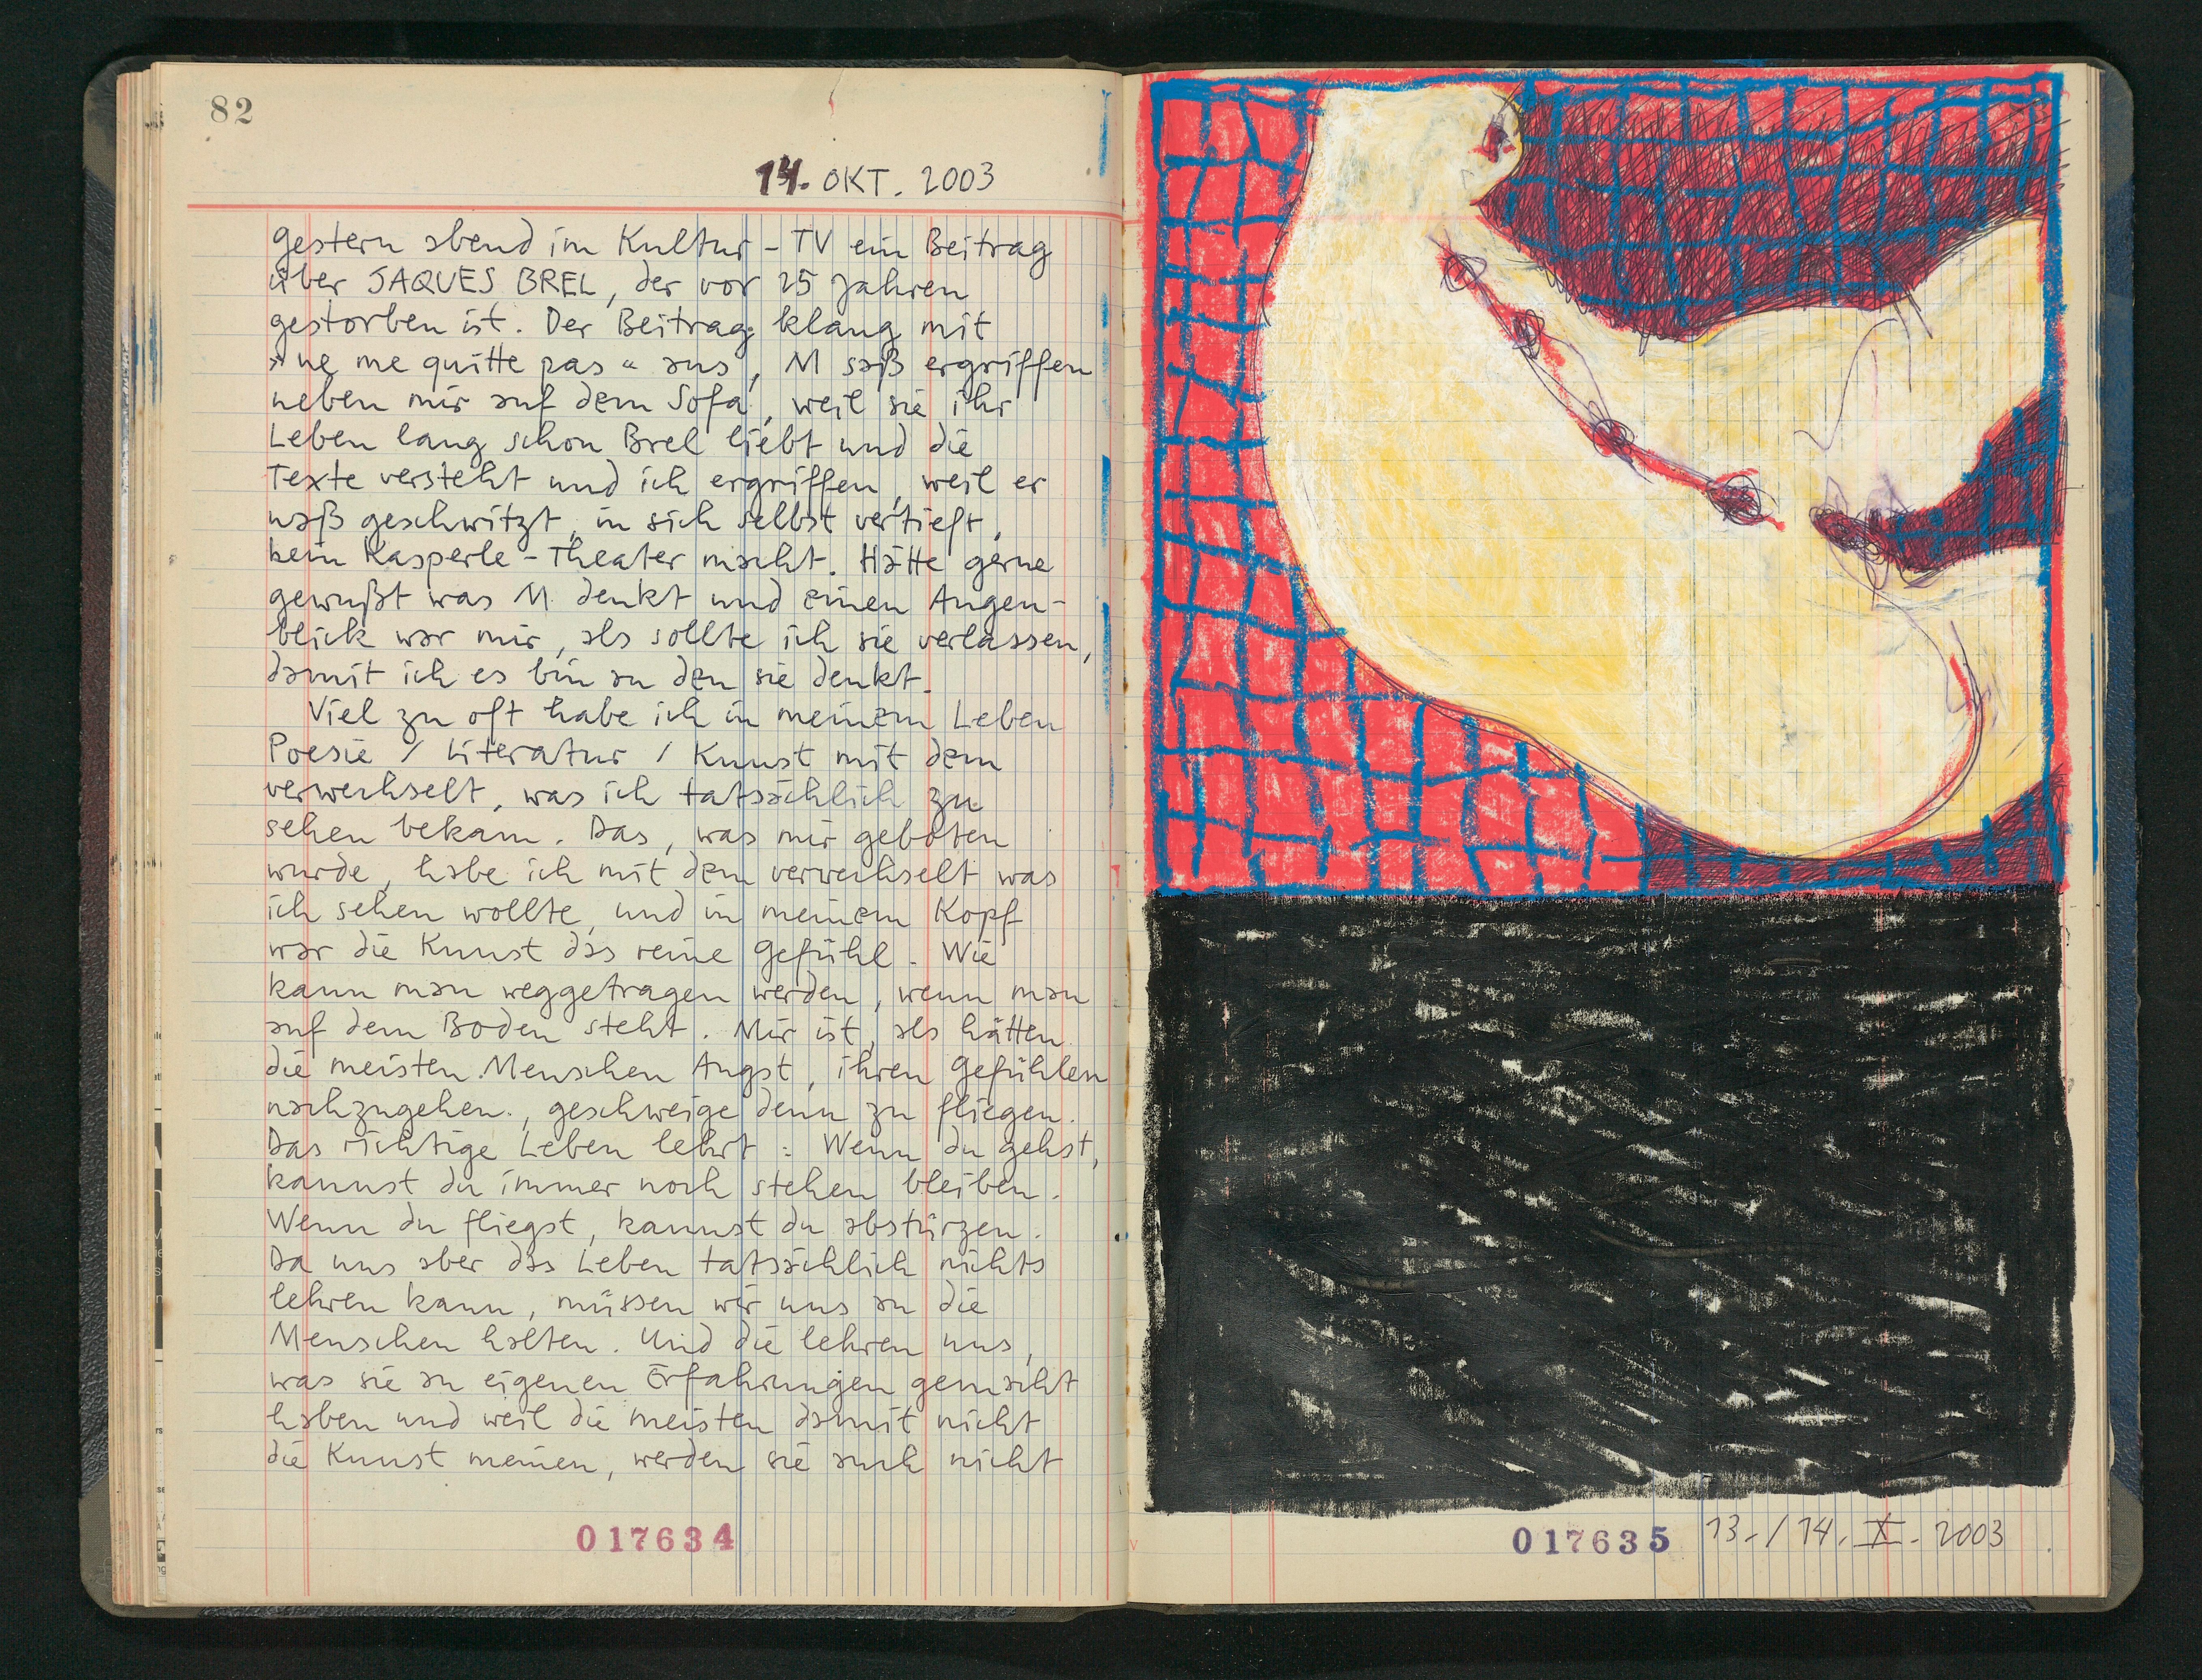 82
14. OKT. 2003
gestern abend im Kultur-TV ein Beitrag
über JAQUES BREL, der vor 25 Jahren
gestorben ist. Der Beitrag klang mit
»ne me quitte pas« aus, M saß ergriffen
neben mir auf dem Sofa, weil sie ihr
Leben lang schon Brel liebt und die
Texte versteht und ich ergriffen, weil er
naß geschwitzt, in sich selbst vertieft,
kein Kasperle-Theater macht. Hätte gerne
gewußt was M. denkt und einen Augen-
blick war mir, als sollte ich sie verlassen,
damit ich es bin an den sie denkt.
Viel zu oft habe ich in meinem Leben
Poesie / Literatur / Kunst mit dem
verwechselt, was ich tatsächlich zu
sehen bekam. Das, was mir geboten
wurde, habe ich mit dem verwechselt was
ich sehen wollte und in meinem Kopf
war die Kunst das reine Gefühl. Wie
kann man weggetragen werden, wenn man
auf dem Boden steht. Mir ist, als hätten
die meisten Menschen Angst, ihren Gefühlen
nachzugehen., geschweige denn zu fliegen.
Das richtige Leben lehrt: Wenn du gehst,
kannst du immer noch stehen bleiben.
Wenn du fliegst, kannst du abstürzen.
Da uns aber das Leben tatsächlich nichts
lehren kann, müssen wir uns an die
Menschen halten. Und die lehren uns,
was sie an eigenen Erfahrungen gemacht
haben und weil die meisten damit nicht
die Kunst meinen, werden sie auch nicht
017634
017635 13./14. X. 2003